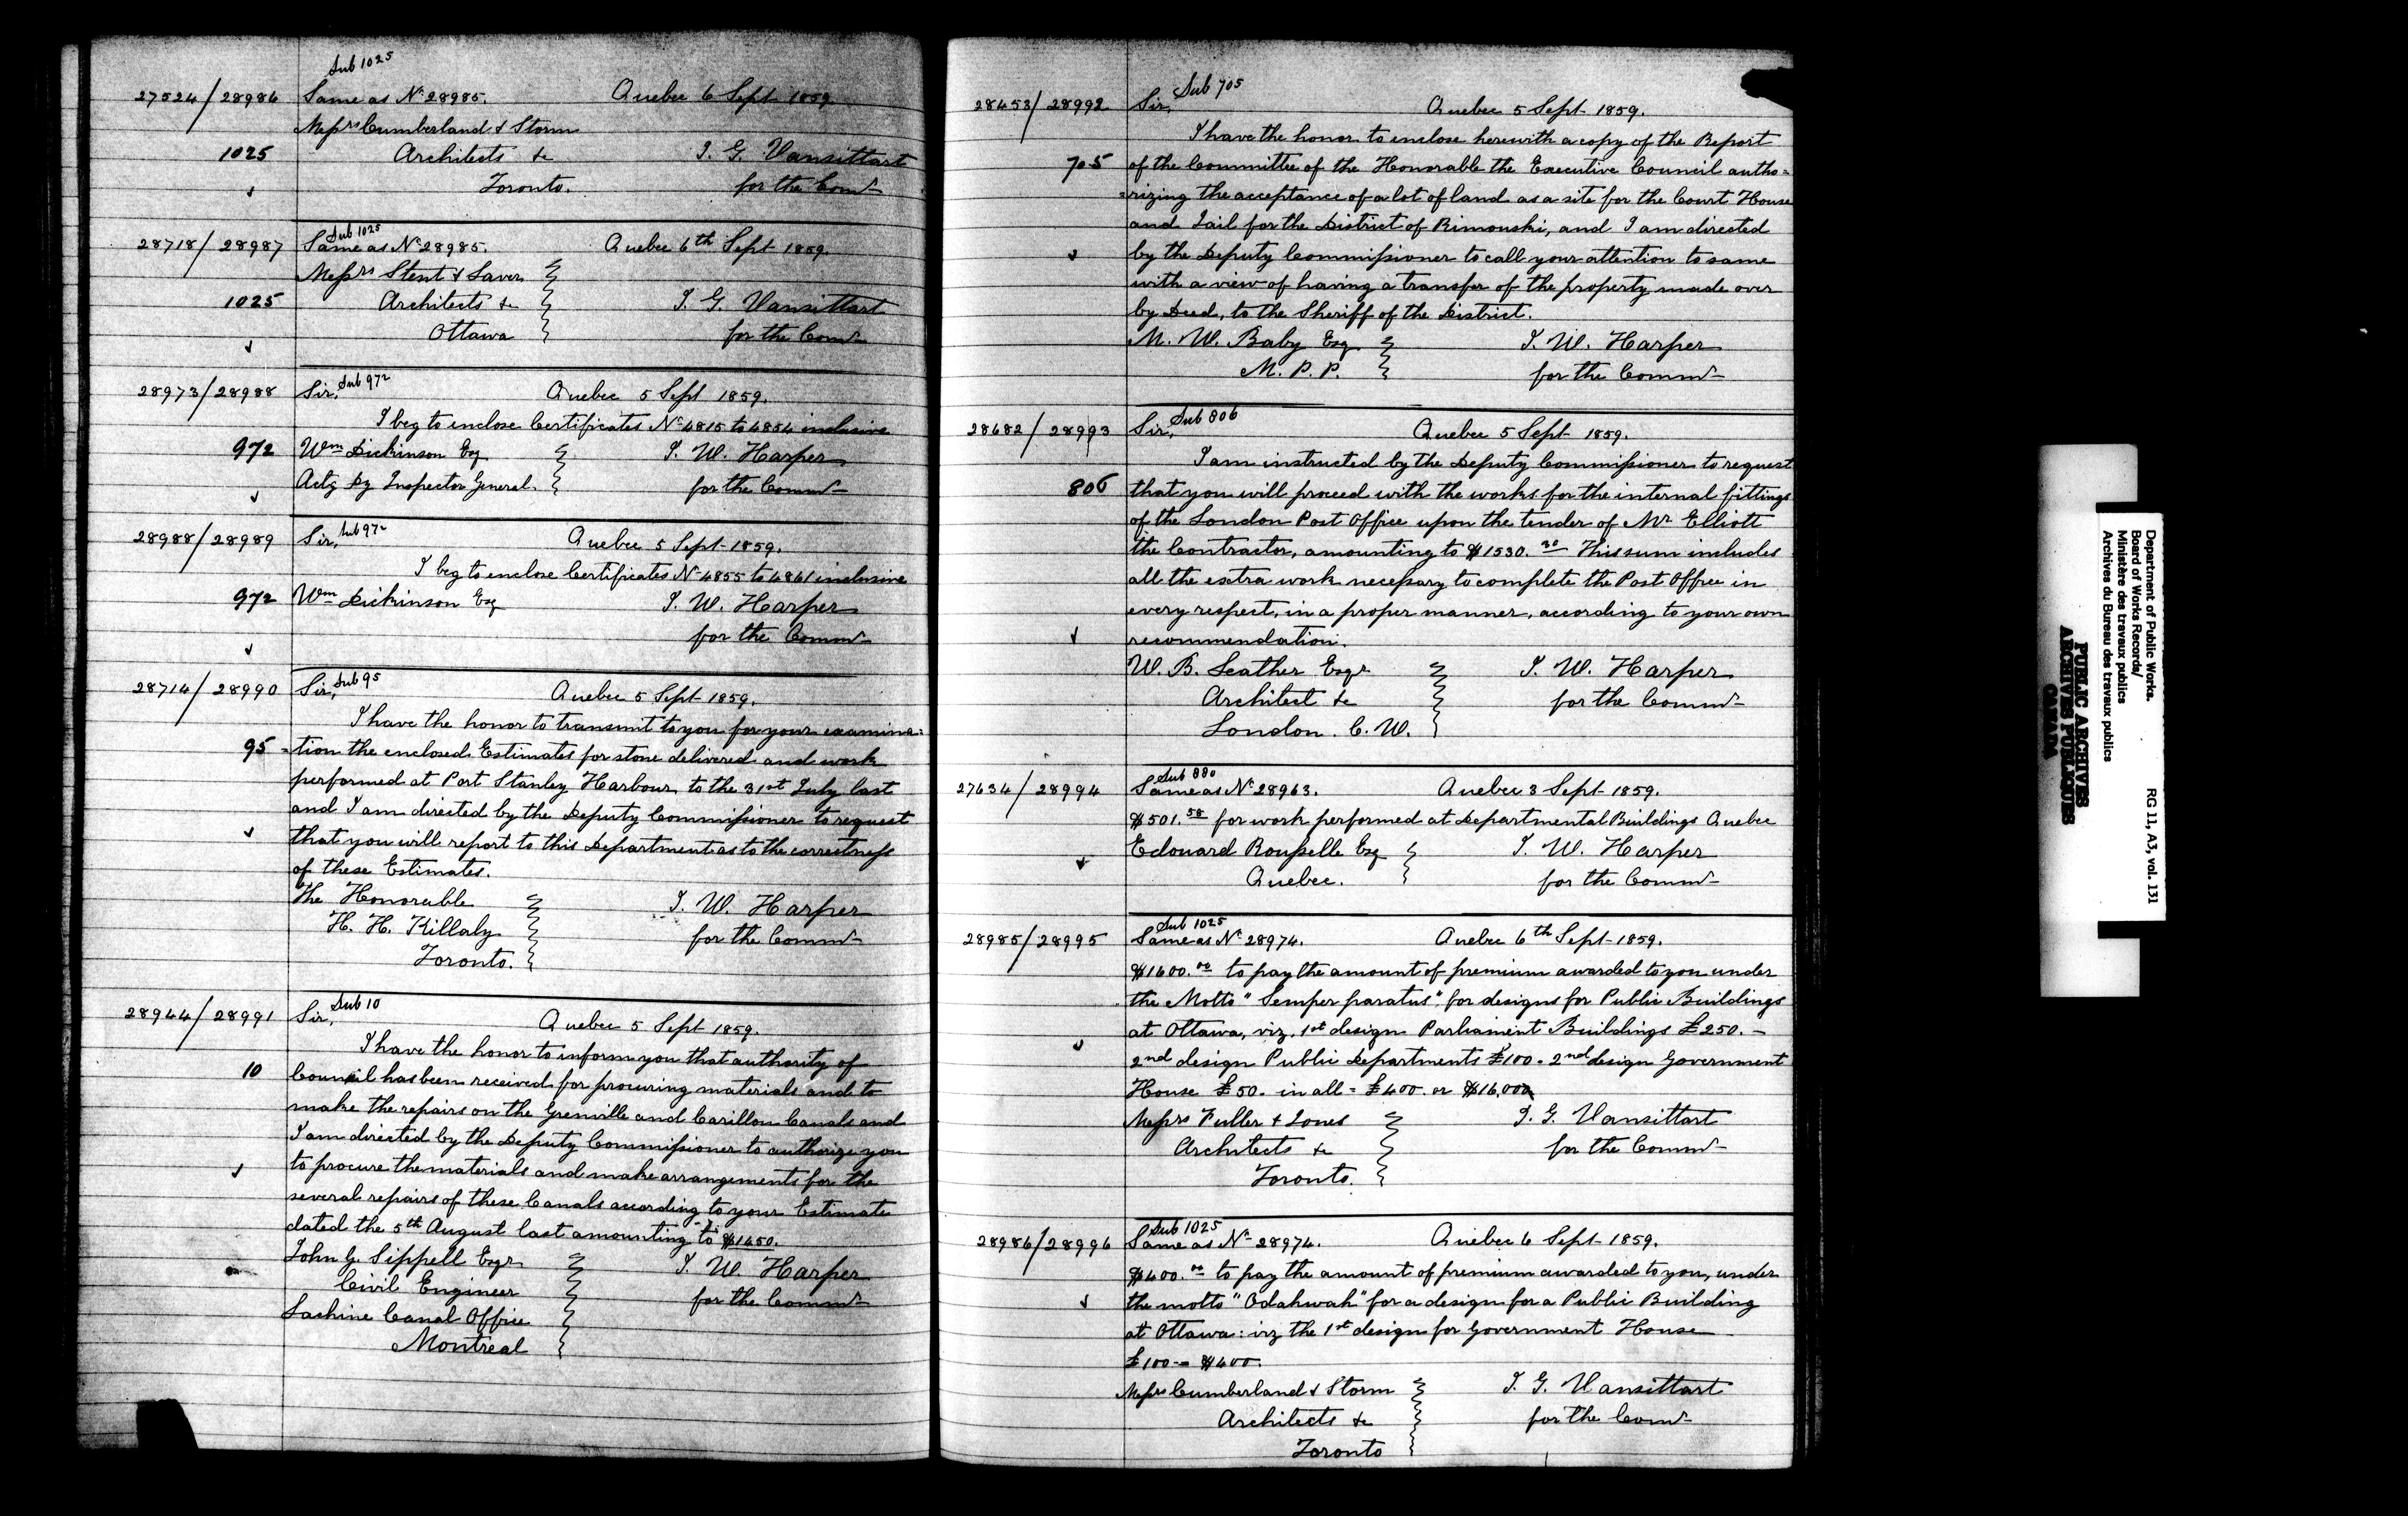 Sub 1025
27524/28986 Same as No 28985. Quebec 6 Sept 1859.
Messrs Cumberland & Storm
1025 Architects &c T. G. Vansittart
Toronto. for the Comr
Sub 1025
28718/28987 Same as No 28985. Quebec 6th Sept 1859.
Messrs Stent & Laver
1025 Architects &c T. G. Vansittart
Ottawa for the Comr
28973/28988 Sir, Sub 972 Quebec 5 Sept 1859.
I beg to enclose Certificates No 4815 to 4854 inclusive
972 Wm Dickinson Esq T. W. Harper
Actg Dy Inspector General. for the Commr
28988/28989 Sir, Sub 972 Quebec 5 Sept 1859.
I beg to enclose Certificates No 4855 to 4861 inclusive
972 Wm Dickinson Esq T. W. Harper
for the Commr
28714/28990 Sir, Sub 95 Quebec 5 Sept 1859.
I have the honor to transmit to you for your examina=
95 =tion the enclosed Estimates for stone delivered and work
performed at Port Stanley Harbour to the 31st July last
and I am directed by the Deputy Commissioner to request
that you will report to this Department as to the correctness
of these Estimates.
The Honorable T. W. Harper
H. H. Killaly for the Commr
Toronto.
28944/28991 Sir, Sub 10 Quebec 5 Sept 1859.
I have the honor to inform you that authority of
10 Council has been received for procuring materials and to
make the repairs on the Grenville and Carillon Canals and
I am directed by the Deputy Commissioner to authorize you
to procure the materials and make arrangements for the
several repairs of these Canals according to your Estimate
dated the 5th August last amounting to $1450.
John G. Sippell Esqr T. W. Harper
Civil Engineer for the Commr
Lachine Canal Office
Montreal
28453/28992 Sir, Sub 705 Quebec 5 Sept 1859.
I have the honor to enclose herewith a copy of the Report
705 of the Committee of the Honorable the Executive Council autho=
=rizing the acceptance of a lot of land as a site for the Court House
and Jail for the District of Rimouski, and I am directed
by the Deputy Commissioner to call your attention to same
with a view of having a transfer of the property made over
by Deed, to the Sheriff of the District.
M. W. Baby Esq T. W. Harper
M. P. P. for the Commr
28682/28993 Sir, Sub 806 Quebec 5 Sept 1859.
I am instructed by the Deputy Commissioner to request
806 that you will proceed with the works for the internal fittings
of the London Post Office upon the tender of Mr Elliott
the Contractor, amounting to $1530.30 This sum includes
all the extra work necessary to complete the Post Office in
every respect, in a proper manner, according to your own
recommendation.
W. B. Leather Esqr T. W. Harper
Architect &c for the Commr
London. C. W.
Sub 880
27634/28994 Same as No 28963. Quebec 3 Sept 1859.
$501.58 for work performed at Departmental Buildings Quebec
Edouard Rousselle Esq T. W. Harper
Quebec. for the Commr
Sub 1025
28985/28995 Same as No 28974. Quebec 6th Sept 1859.
$1600.00 to pay the amount of premium awarded to you under
the Motto "Semper paratus" for designs for Public Buildings
at Ottawa, viz, 1st design Parliament Buildings £250.-
2nd design Public Departments £100- 2nd design Government
House £50- in all = £400- or $16,00
Messrs Fuller & Jones T. G. Vansittart
Architects &c for the Commr
Toronto.
Sub 1025
28986/28996 Same as No 28974. Quebec 6 Sept 1859.
$400.00 to pay the amount of premium awarded to you, under
the motto "Odahwah" for a design for a Public Building
at Ottawa: viz the 1st design for Government House
£100-= $400.
Messrs Cumberland & Storm T. G. Vansittart
Architects &c for the Comr
Toronto
Department of Public Works.
Board of Works Records/
Ministère des travaux publics
Archives du Bureau des travaux publics
RG 11, A3, vol. 131
PUBLIC ARCHIVES
ARCHIVES PUBLIQUES
CANADA